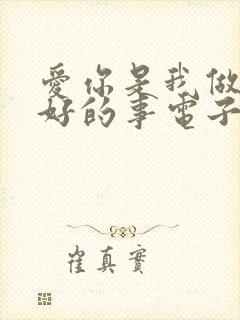 愛你是我做
好的事電子
崔真實